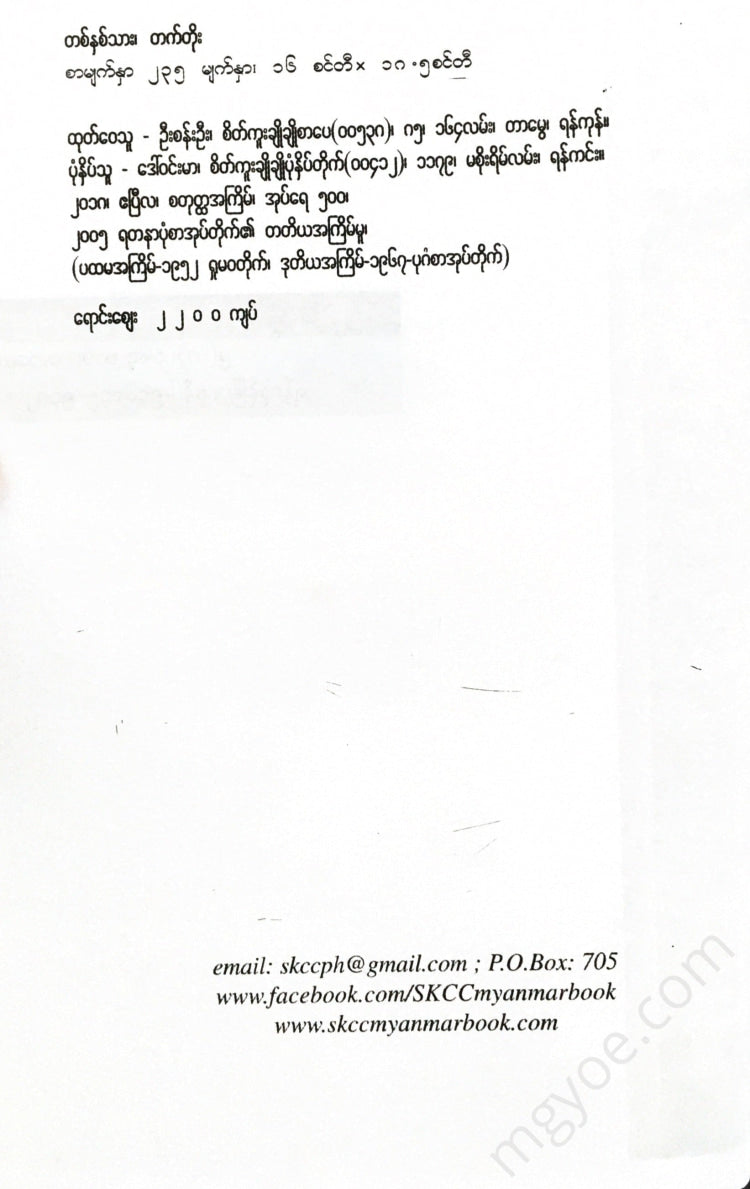 တစ်နှစ်သား၊ တက်တိုး
စာမျက်နှာ ၂၃၅ မျက်နှာ၊ ၁၆ စင်တီ× ၁ဂ·၅စင်တီ
ထုတ်ဝေသူ - ဦးစန်းဦး၊ စိတ်ကူးချိုချိုစာပေ(၀၀၅၃ဂ)၊ ဂ၅၊ ၁၆၄လမ်း၊ တာမွေ၊ ရန်ကုန်။
ပုံနှိပ်သူ - ဒေါ်ဝင်းမာ၊ စိတ်ကူးချိုချိုပုံနှိပ်တိုက်(၀၀၄၁၂)၊ ၁၁၇၉၊ မစိုးရိမ်လမ်း၊ ရန်ကင်း။
၂၀၁ဂ၊ ဧပြီလ၊ စတုတ္ထအကြိမ်၊ အုပ်ရေ ၅၀၀၊
၂၀၀၅ ရတနာပုံစာအုပ်တိုက်၏ တတိယအကြိမ်မူ၊
(ပထမအကြိမ်-၁၉၅၂ ရှုမဝတိုက်၊ ဒုတိယအကြိမ်-၁၉၆၇-ပုဂံစာအုပ်တိုက်)
ရောင်းဈေး ၂၂၀၀ ကျပ်
email: skccph@gmail.com ; P.O.Box: 705
www.facebook.com/SKCCmyanmarbook
www.skccmyanmarbook.com
mgyoe.com